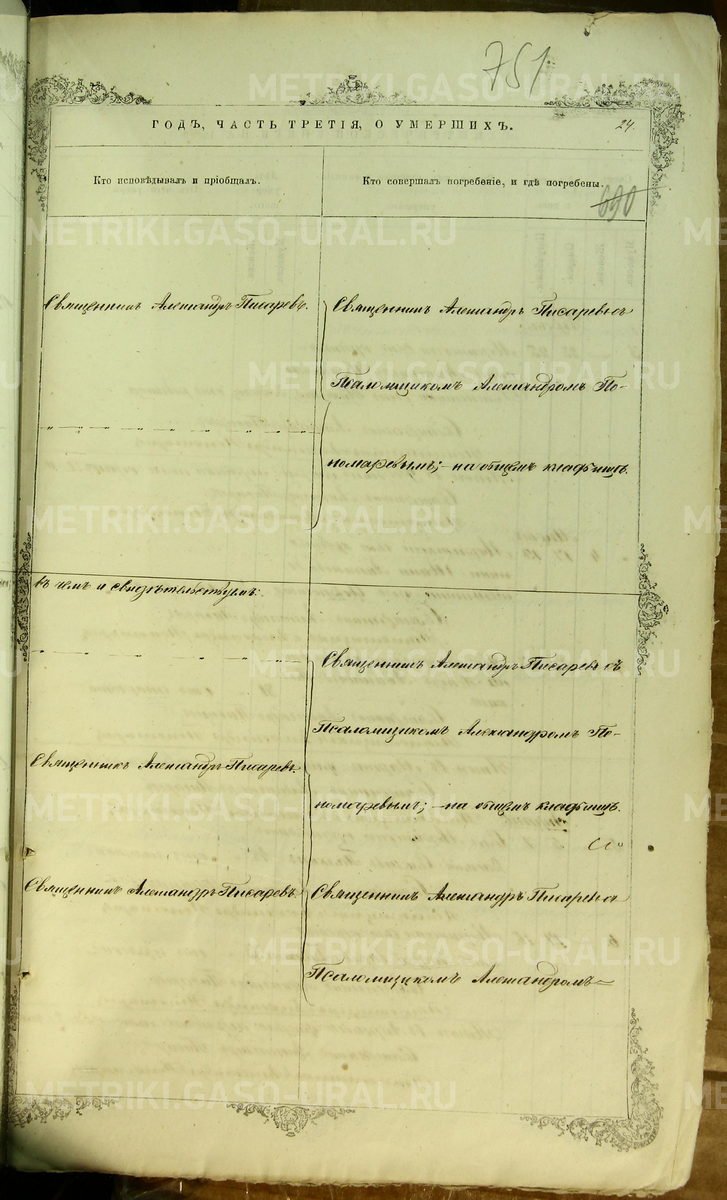 751
ГОДЪ, ЧАСТЬ ТРЕТІЯ, О УМЕРШИХЪ.
24.
Кто исповѣдывалъ и пріобщалъ.
Кто совершалъ погребеніе, и гдѣ погребены.
690
Священникъ Александръ Писаревъ.
Священникъ Александръ Писаревъ съ
Псаломщикомъ Александромъ По-
номаревымъ; - на общемъ кладбищѣ.
въ чемъ и свидѣтельствуемъ:
Священникъ Александръ Писаревъ съ
Псаломщикомъ Александромъ По-
Священникъ Александръ Писаревъ.
номаревымъ; - на общемъ кладбищѣ.
Священникъ Александръ Писаревъ.
Священникъ Александръ Писаревъ съ
Псаломщикомъ Александромъ
METRIKI.GASO-URAL.RU